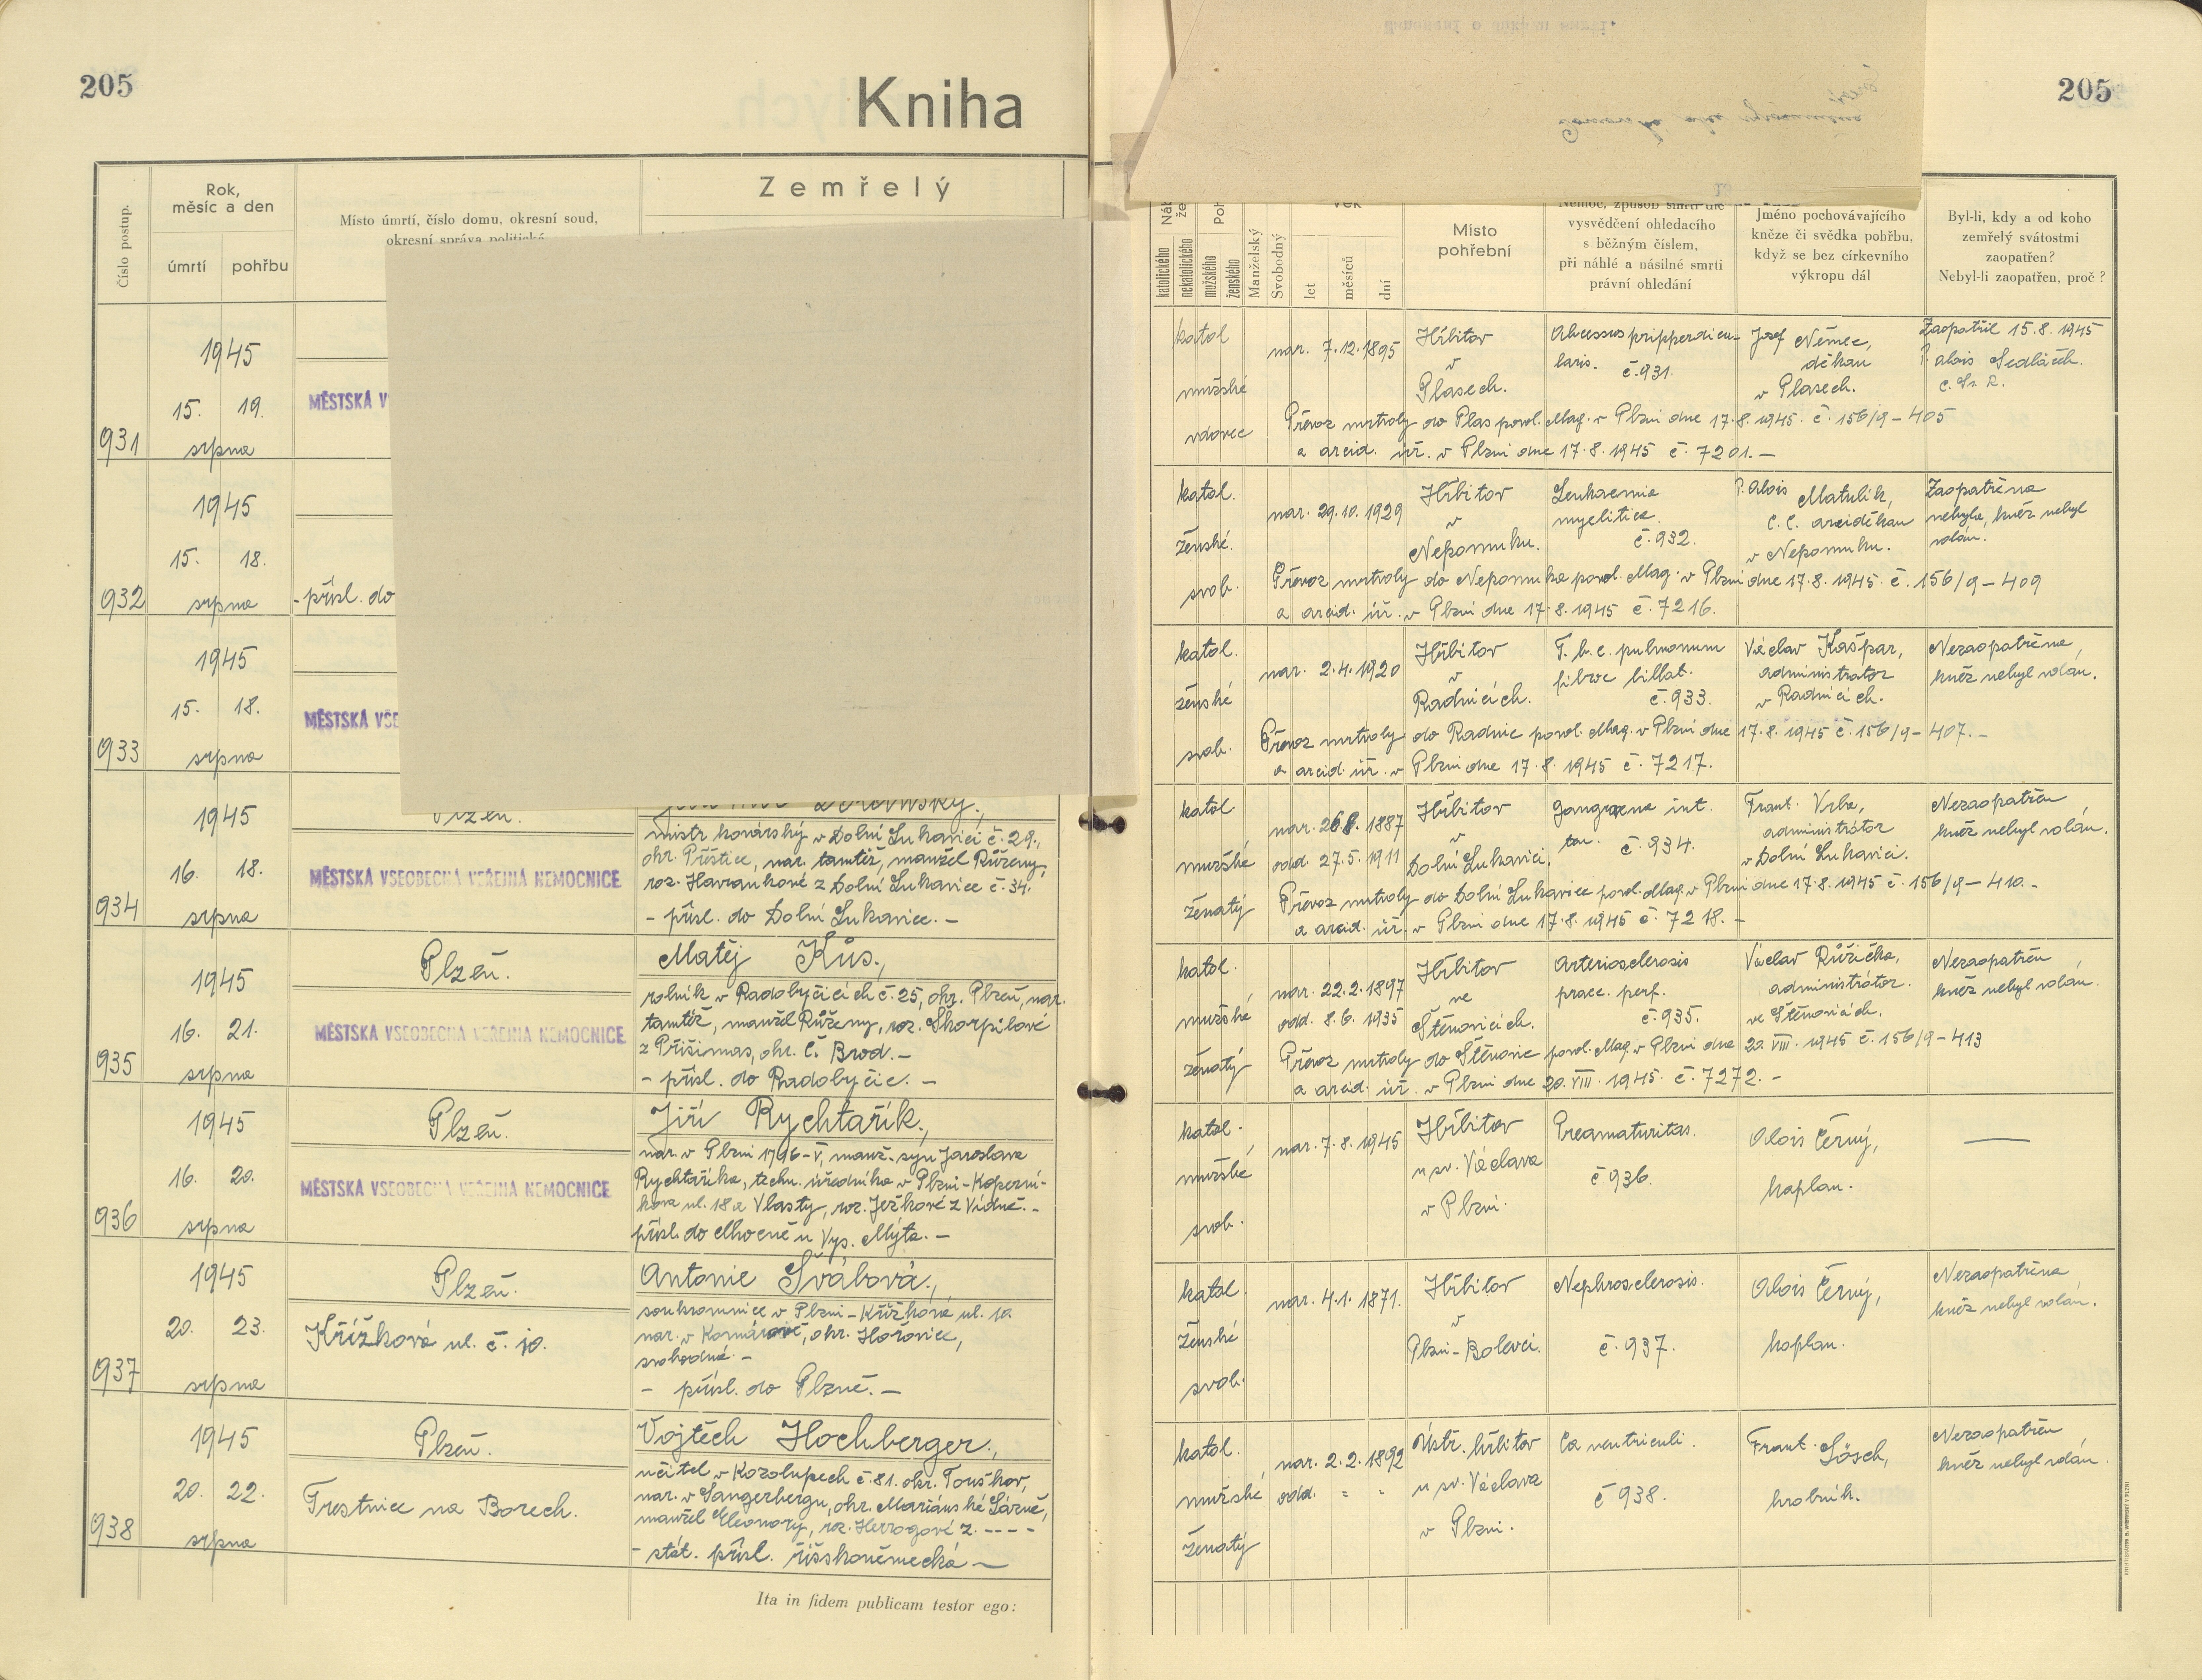 205
Kniha
205
Číslo postup.
Rok,
měsíc a den
úmrtí
pohřbu
Místo úmrtí, číslo domu, okresní soud,
okresní správa politická
Zemřelý
katolického
nekatolického
mužského
ženského
Manželský
Svobodný
let
měsíců
dní
Místo
pohřební
Nemoc, způsob smrti dle
vysvědčení ohledacího
s běžným číslem,
při náhlé a násilné smrti
právní ohledání
Jméno pochovávajícího
kněze či svědka pohřbu,
když se bez církevního
výkropu dál
Byl-li, kdy a od koho
zemřelý svátostmi
zaopatřen?
Nebyl-li zaopatřen, proč?
931
1945
15. 19.
srpna
MĚSTSKÁ V
katol
mužské
vdovec
nar. 7.12.1895
Hřbitov
v
Plasech.
č. 931.
Josef Němec,
děkan
v Plasech.
Zaopatřil 15.8.1945
P. Alois Sedláček.
Převoz mrtvoly do Plas povol. Mag. v Plzni dne 17.8.1945 č. 156/9-405
a arcid. úř. v Plzni dne 17.8.1945 č. 7201.-
932
1945
15. 18.
srpna
- přísl. do
katol.
ženské.
svob.
nar. 29.10.1929
Hřbitov
v
Nepomuku.
Leukaemia
myelitica.
č. 932.
P. Alois Matulík,
C. C. arciděkan
v Nepomuku.
Zaopatřena
nebyla, kněz nebyl
volán.
Převoz mrtvoly do Nepomuka povol. Mag. v Plzni dne 17.8.1945 č. 156/9-409
a arcid. úř. v Plzni dne 17.8.1945 č. 7216.
933
1945
15. 18.
srpna
MĚSTSKÁ VŠE
katol.
ženské
svob.
nar. 2.4.1920
Hřbitov
v
Radnicích.
T. b. c. pulmonum
č. 933.
Václav Kašpar,
administrátor
v Radnicích.
Nezaopatřena,
kněz nebyl volán.
Převoz mrtvoly do Radnic povol. Mag. v Plzni dne 17.8.1945 č. 156/9-407.-
a arcid. úř. v Plzni dne 17.8.1945 č. 7217.
934
1945
16. 18.
srpna
Plzeň.
MĚSTSKÁ VŠEOBECNÁ VEŘEJNÁ NEMOCNICE
mistr kovářský v Dolní Lukavici č. 29.,
okr. Přeštice, nar. tamtéž, manžel Růženy,
roz. Havránkové z Dolní Lukavice č. 34.
- přísl. do Dolní Lukavice. -
katol
mužské
ženatý
nar. 1887
odd. 27.5.1911
Hřbitov
v
Dolní Lukavici.
č. 934.
Frant. Vrba,
administrátor
v Dolní Lukavici.
Nezaopatřen
kněz nebyl volán.
Převoz mrtvoly do Dolní Lukavice povol. Mag. v Plzni dne 17.8.1945 č. 156/9-410.-
a arcid. úř. v Plzni dne 17.8.1945 č. 7218.-
935
1945
16. 21.
srpna
Plzeň.
MĚSTSKÁ VŠEOBECNÁ VEŘEJNÁ NEMOCNICE
Matěj Kůs.,
rolník v Radobyčicích č. 25, okr. Plzeň, nar.
tamtéž, manžel Růženy, roz. Škorpilové
z Přišimas, okr. Č. Brod.-
- přísl. do Radobyčic. -
katol.
mužské
ženatý
nar. 22.2.1897
odd. 8.6.1935
Hřbitov
ve
Štěnovicích.
Arteriosclerosis
praec. perf.
č. 935.
Václav Růžička,
administrátor.
ve Štěnovicích.
Nezaopatřen
kněz nebyl volán.
Převoz mrtvoly do Štěnovic povol. Mag. v Plzni dne 20. VIII. 1945 č. 156/9-413
a arcid. úř. v Plzni dne 20. VIII. 1945. č. 7272.-
936
1945
16. 20.
srpna
Plzeň.
MĚSTSKÁ VŠEOBECNÁ VEŘEJNÁ NEMOCNICE
Jiří Rychtařík.,
nar. v Plzni 1796-V, manž. syn Jaroslava
Rychtaříka, techn. úředníka v Plzni-Koperní-
kova ul. 18 a Vlasty, roz. Ježkové z Vídně.-
přísl. do Chocně u Vys. Mýta. -
katol.
mužské
svob.
nar. 7.8.1945
Hřbitov
u sv. Václava
v Plzni.
Preamaturitas.
č 936.
Alois Černý,
kaplan.
937
1945
20. 23.
srpna
Plzeň.
Křížková ul. č. 10.
Antonie Švábová.,
soukromnice v Plzni-Křížkova ul. 10
nar. v Komárově, okr. Hořovice,
svobodná.-
- přísl. do Plzně. -
katol.
ženské
svob.
nar. 4.1.1871.
Hřbitov
v
Plzni-Bolevci.
Nephrosclerosis.
č. 937.
Alois Černý,
kaplan.
Nezaopatřena
kněz nebyl volán.
938
1945
20. 22.
srpna
Plzeň.
Trestnice na Borech.
Vojtěch Hochberger.,
učitel v Kozolupech č. 81. okr. Touškov,
nar. v Sangerbergu, okr. Mariánské Lázně,
manžel Eleonory, roz. Herzogové z. ----
- stát. přísl. říšskoněmecká -
katol.
mužské
ženatý
nar. 2.2.1892
odd. - -
Ústř. hřbitov
u sv. Václava
v Plzni.
Ca ventriculi.
č 938.
Frant. Lösch,
hrobník.
Nezaopatřen
kněz nebyl volán.
Ita in fidem publicam testor ego: